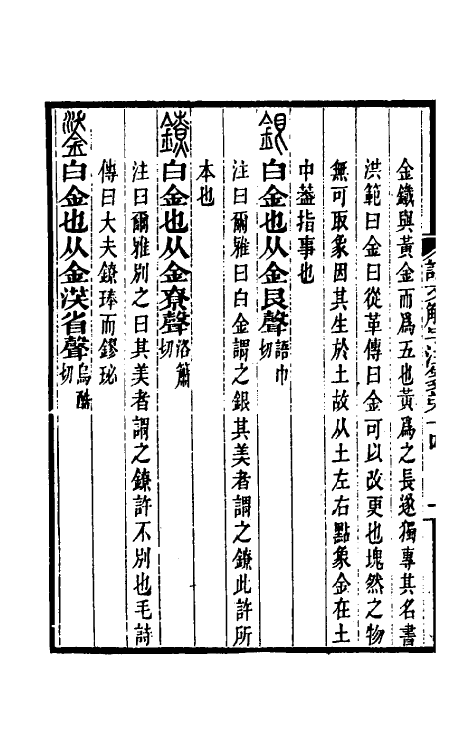 金鐵與黃金而爲五也黃爲之長遂獨專其名書
洪範曰金曰從革傳曰金可以改更也塊然之物
無可取象因其生於土故从土左右點象金在土
中葢指事也
銀 白金也从金艮聲 語巾切
注曰爾雅曰白金謂之銀其美者謂之鐐此許所
本也
鐐 白金也从金尞聲 洛蕭切
注曰爾雅別之曰其美者謂之鐐許不別也毛詩
傳曰大夫鐐琫而鏐珌
鋈 白金也从金沃省聲 烏酷切